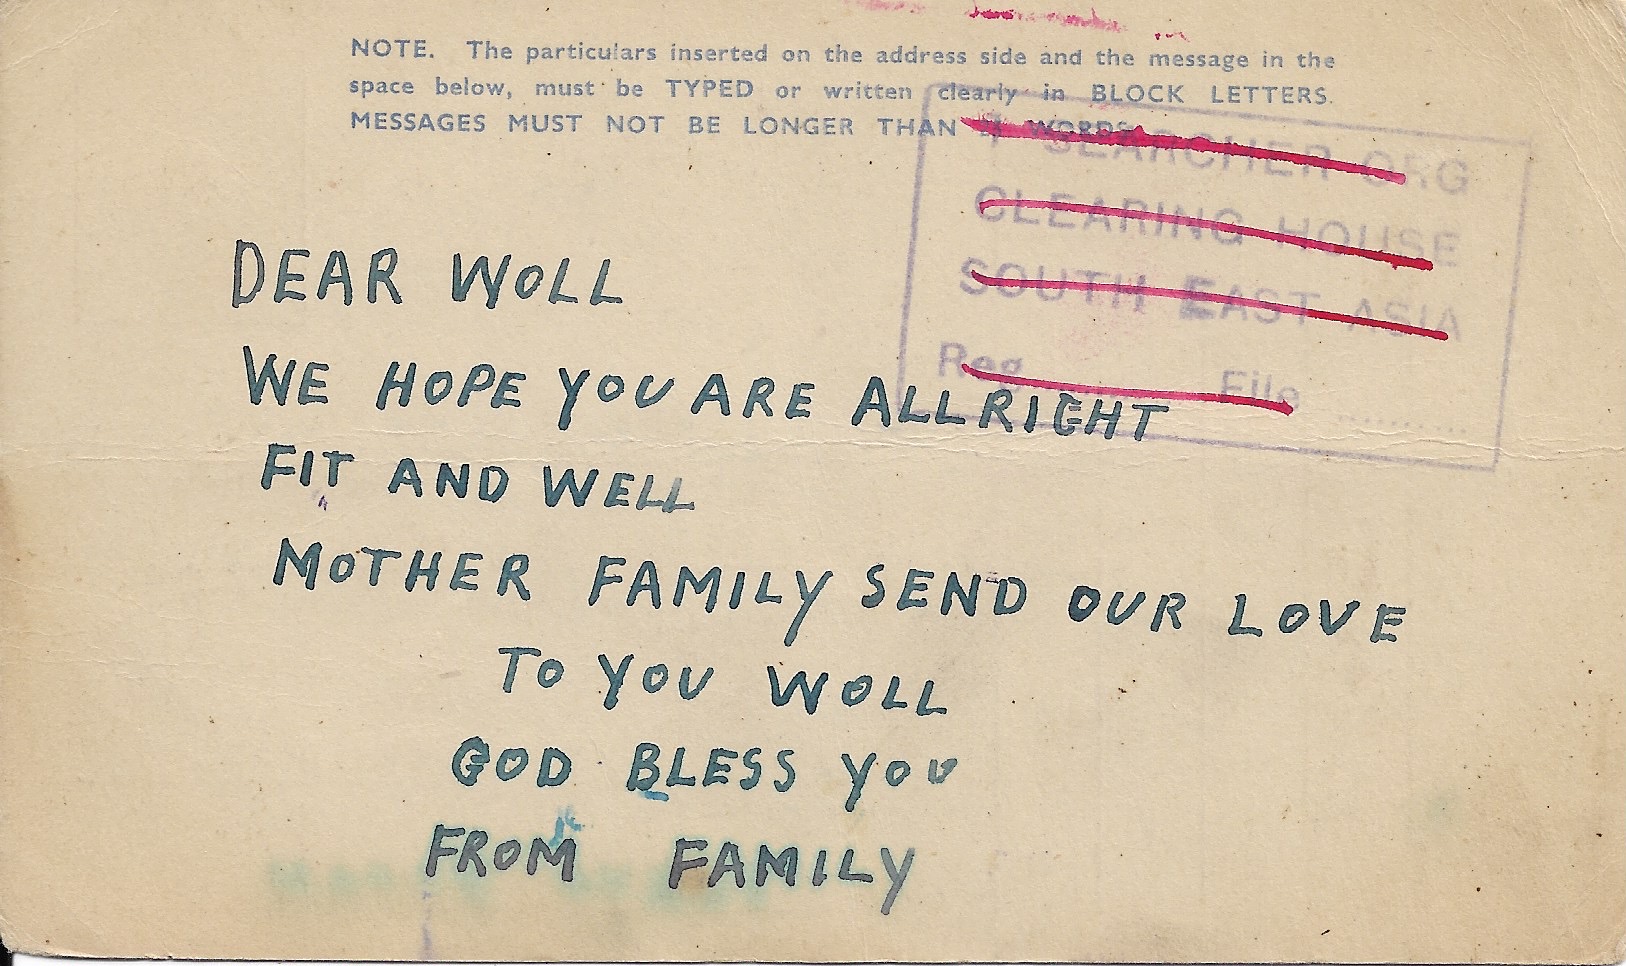 NOTE. The particulars inserted on the address side and the message in the
space below, must be TYPED or written clearly in BLOCK LETTERS.
MESSAGES MUST NOT BE LONGER THAN WORDS
SEARCHER ORG
CLEARING HOUSE
SOUTH EAST ASIA
Reg File
DEAR WOLL
WE HOPE YOU ARE ALLRIGHT
FIT AND WELL
MOTHER FAMILY SEND OUR LOVE
TO YOU WOLL
GOD BLESS YOU
FROM FAMILY